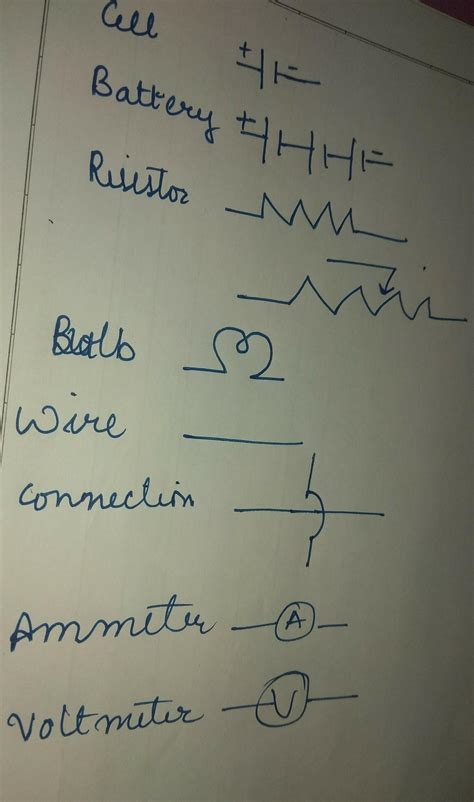 Cell
+ -
Battery + =
Resistor
Bulb
Wire
Connection
Ammeter A
Voltmeter V